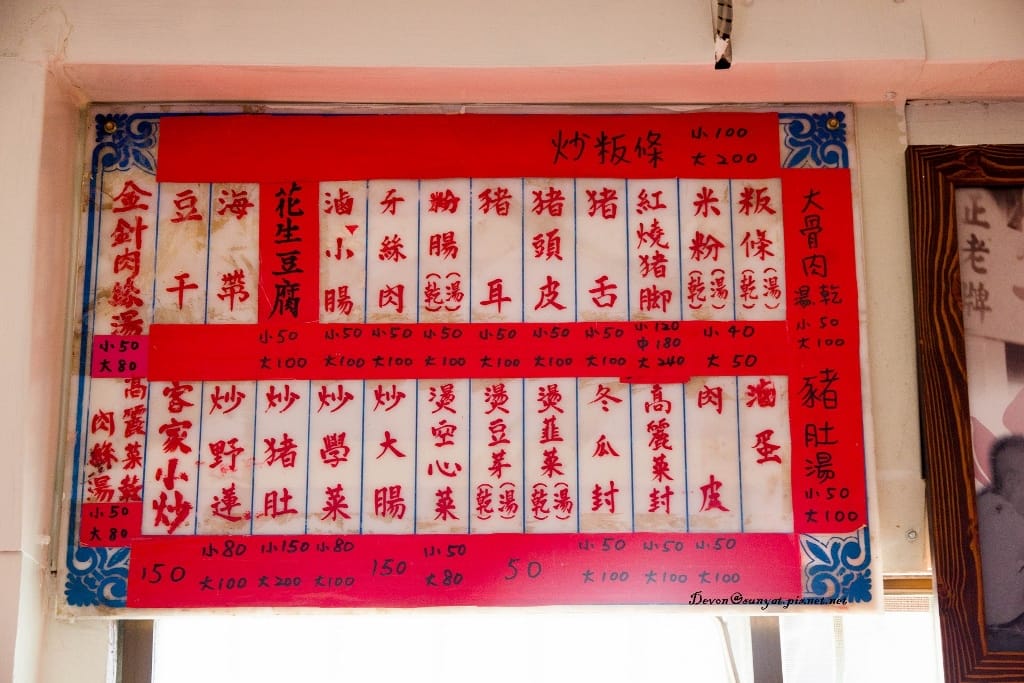 炒粄條 小100 大200
大骨肉 湯乾 小50 大100
豬肚湯 小50 大100
粄條(湯)(乾)
米粉(湯)(乾)
紅燒猪脚
猪舌
猪頭皮
猪耳
粉腸(湯)(乾)
牙絲肉
滷小腸
花生豆腐
海帶
豆干
金針肉絲湯
小50
大80
小40 大50
小120 中180 大240
小50 大100
小50 大100
小50 大100
小50 大100
小50 大100
小50 大100
小50 大100
滷蛋
肉皮
高麗菜封
冬瓜封
燙韮菜(湯)(乾)
燙豆芽(湯)(乾)
燙空心菜
炒大腸
炒學菜
炒猪肚
炒野蓮
客家小炒
高麗菜乾肉絲湯
小50
大80
小50 大100
小50 大100
小50 大100
50
小50 大80
150
小80 大100
小150 大200
小80 大100
150
正老牌
Devon@sunyat.pixnet.net